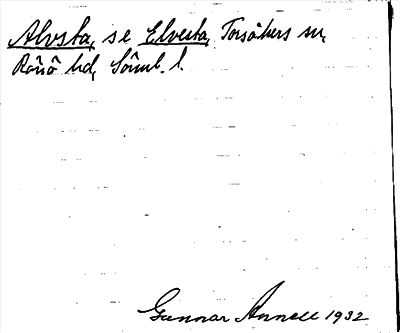 Alvsta, se Elvesta, Torsåkers sn,
Rönö hd, Söml. l.
Gunnar Annell 1932